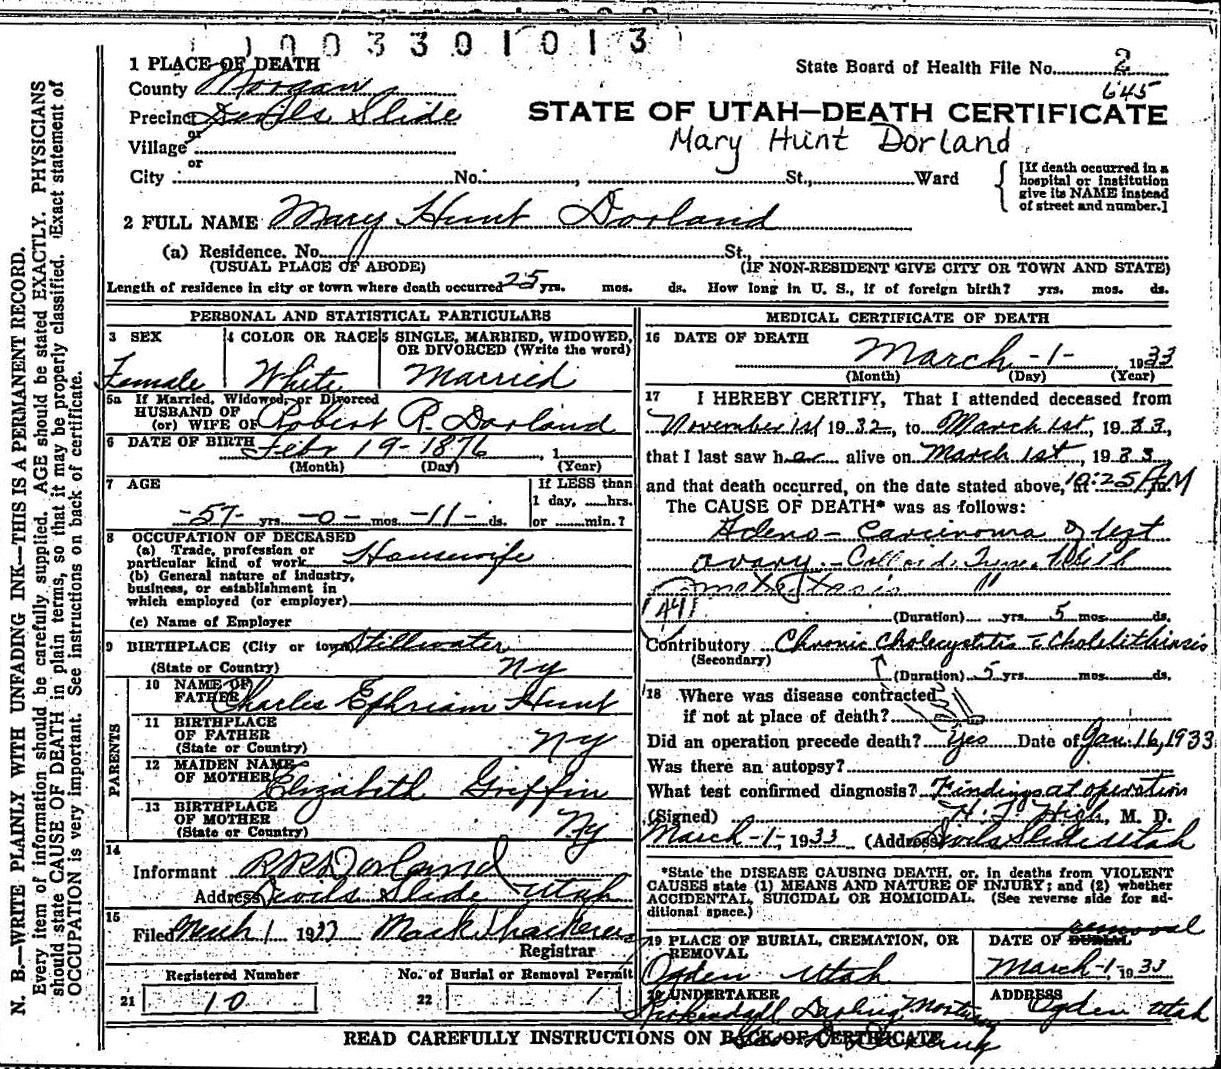 0 0 3 3 0 1 0 1 3
1 PLACE OF DEATH
State Board of Health File No. 2
645
County Morgan
STATE OF UTAH—DEATH CERTIFICATE
Precinct Devils Slide
Mary Hunt Dorland
or
Village
or
City No. , St., Ward
[If death occurred in a
hospital or institution
give its NAME instead
of street and number.]
2 FULL NAME Mary Hunt Dorland
(a) Residence. No. St.,
(USUAL PLACE OF ABODE) (IF NON-RESIDENT GIVE CITY OR TOWN AND STATE)
Length of residence in city or town where death occurred 25 yrs. mos. ds. How long in U. S., if of foreign birth? yrs. mos. ds.
PERSONAL AND STATISTICAL PARTICULARS
3 SEX 4 COLOR OR RACE 5 SINGLE, MARRIED, WIDOWED,
OR DIVORCED (Write the word)
Female White Married
5a If Married, Widowed, or Divorced
HUSBAND OF
(or) WIFE OF Robert R. Dorland
6 DATE OF BIRTH Febr 19-1876 , 1
(Month) (Day) (Year)
7 AGE
If LESS than
1 day, hrs.
-57- yrs. -0- mos. -11- ds. or min.?
8 OCCUPATION OF DECEASED
(a) Trade, profession or
particular kind of work Housewife
(b) General nature of industry,
business, or establishment in
which employed (or employer)
(c) Name of Employer
9 BIRTHPLACE (City or town) Stillwater
(State or Country) NY
PARENTS
10 NAME OF
FATHER Charles Ephriam Hunt
11 BIRTHPLACE
OF FATHER
(State or Country) NY
12 MAIDEN NAME
OF MOTHER Elizabeth Griffin
13 BIRTHPLACE
OF MOTHER
(State or Country) NY
14
Informant R R Dorland
Address Devils Slide Utah
15
Filed March 1 1933 Mark
Registrar
Registered Number No. of Burial or Removal Permit
21 10 22 1
MEDICAL CERTIFICATE OF DEATH
16 DATE OF DEATH
March -1- 1933
(Month) (Day) (Year)
17 I HEREBY CERTIFY, That I attended deceased from
November 1st 1932, to March 1st, 1933,
that I last saw her alive on March 1st, 1933
and that death occurred, on the date stated above, at 10:25 A.M
The CAUSE OF DEATH* was as follows:
Adeno-Carcinoma of left
ovary -
metastasis "
(44)
(Duration) yrs. 5 mos. ds.
Contributory Chronic Cholecystitis c Cholelithiasis
(Secondary)
(Duration) 5 yrs. mos. ds.
18 Where was disease contracted
if not at place of death?
Did an operation precede death? Yes Date of Jan. 16, 1933
Was there an autopsy?
What test confirmed diagnosis? Findings at operation
(Signed) H. F. High, M. D.
March -1-, 1933 (Address) Devils Slide Utah
*State the DISEASE CAUSING DEATH, or, in deaths from VIOLENT
CAUSES state (1) MEANS AND NATURE OF INJURY; and (2) whether
ACCIDENTAL, SUICIDAL OR HOMICIDAL. (See reverse side for ad-
ditional space.)
removal
19 PLACE OF BURIAL, CREMATION, OR
REMOVAL
DATE OF BURIAL
Ogden Utah March-1, 1933
20 UNDERTAKER ADDRESS
Kirkendall Darling Mortuary Ogden Utah
Darling
READ CAREFULLY INSTRUCTIONS ON BACK OF CERTIFICATE
N. B.—WRITE PLAINLY WITH UNFADING INK—THIS IS A PERMANENT RECORD.
Every item of information should be carefully supplied. AGE should be stated EXACTLY. PHYSICIANS
should state CAUSE OF DEATH in plain terms, so that it may be properly classified. Exact statement of
OCCUPATION is very important. See instructions on back of certificate.